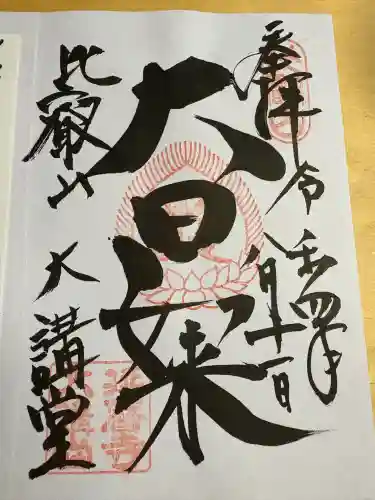 奉拝
令和四年
八月十一日
大日如来
比叡山
大講堂